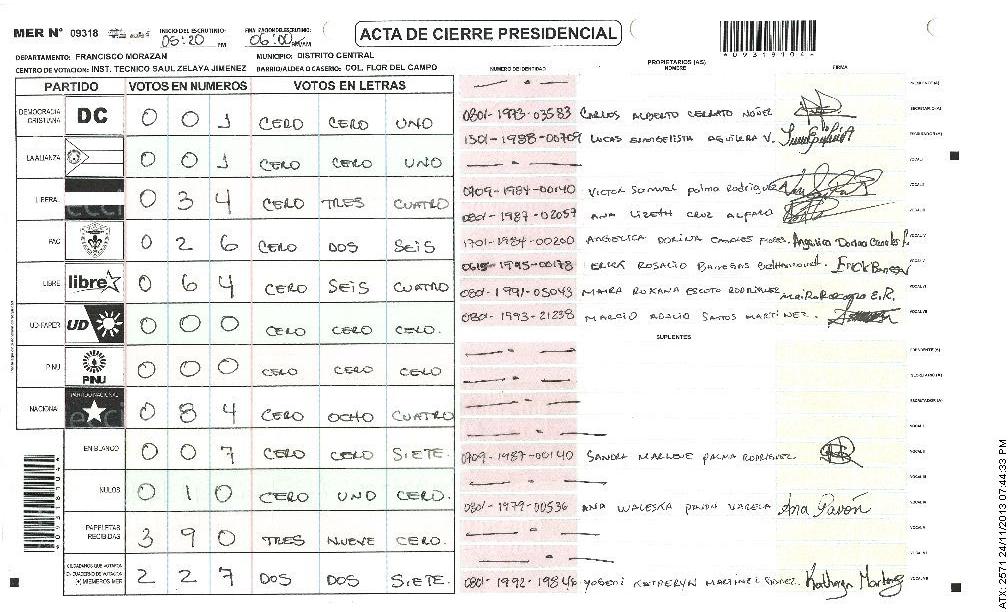 MER N° 09318 INICIO DEL ESCRUTINIO: 05:20 PM 06:00 PM ACTA DE CIERRE PRESIDENCIAL
DEPARTAMENTO: FRANCISCO MORAZAN MUNICIPIO: DISTRITO CENTRAL
CENTRO DE VOTACION: INST. TECNICO SAUL ZELAYA JIMENEZ BARRIO/ALDEA O CASERIO: COL. FLOR DEL CAMPO
PARTIDO VOTOS EN NUMEROS VOTOS EN LETRAS
DEMOCRACIA CRISTIANA DC 0 0 1 CERO CERO UNO
LA ALIANZA 0 0 1 CERO CERO UNO
LIBERAL 0 3 4 CERO TRES CUATRO
PAC 0 2 6 CERO DOS SEIS
LIBRE libre 0 6 4 CERO SEIS CUATRO
UD-FAPER UD 0 0 0 CERO CERO CERO.
PINU PINU 0 0 0 CERO CERO CERO
NACIONAL PARTIDO NACIONAL 0 8 4 CERO OCHO CUATRO
EN BLANCO 0 0 7 CERO CERO SIETE.
NULOS 0 1 0 CERO UNO CERO.
PAPELETAS RECIBIDAS 3 9 0 TRES NUEVE CERO.
CIUDADANOS QUE VOTARON EN CUADERNO DE VOTACION (+) MIEMBROS MER 2 2 7 DOS DOS SIETE.
NUMERO DE IDENTIDAD PROPIETARIOS (AS) NOMBRE FIRMA
PRESIDENTE (A)
0801-1973-03583 CARLOS ALBERTO SERRATO NÚÑEZ SECRETARIO (A)
1501-1988-00709 LUCAS EVANGELISTA AGUILERA V. ESCRUTADOR (A)
VOCAL I
0709-1984-00140 VICTOR SAMUEL PALMA RODRIGUEZ VOCAL II
0801-1987-02057 ANA LIZETH CRUZ ALFARO VOCAL III
1701-1984-00200 ANGELICA DORINA CANALES FLORES. VOCAL IV
0615-1995-00178 ERICK ROSALIO BANEGAS VOCAL V
0801-1991-05043 MAIRA ROXANA ESCOTO RODRIGUEZ VOCAL VI
0801-1993-21238 MARCIO ADALIO SANTOS MARTINEZ. VOCAL VII
SUPLENTES
PRESIDENTE (A)
SECRETARIO (A)
ESCRUTADOR (A)
VOCAL I
0709-1987-00140 SANDRA MARLENE PALMA RODRIGUEZ. VOCAL II
VOCAL III
0801-1979-00536 ANA WALESKA PAVON VARELA Ana Pavón VOCAL IV
VOCAL V
VOCAL VI
KATHERYN MARTINEZ VOCAL VII
ATX-2571 24/11/2013 07:44:33 PM